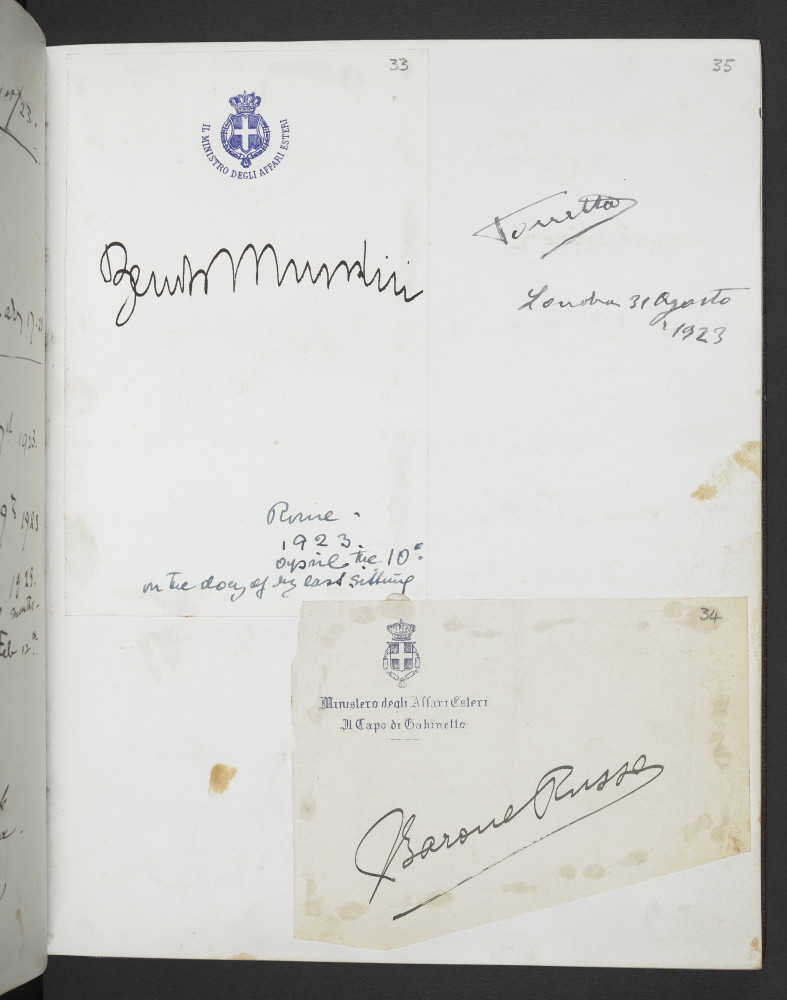 33
IL MINISTRO DEGLI AFFARI ESTERI
Benito Mussolini
Rome.
1923.
april the 10th
on the day of my last sitting
35
Torretta
Londra 31 Agosto
1923
34
Ministero degli Affari Esteri
Il Capo di Gabinetto
Barone Russo
/23.
1923.
1923
1923.
months.
Feb 12th